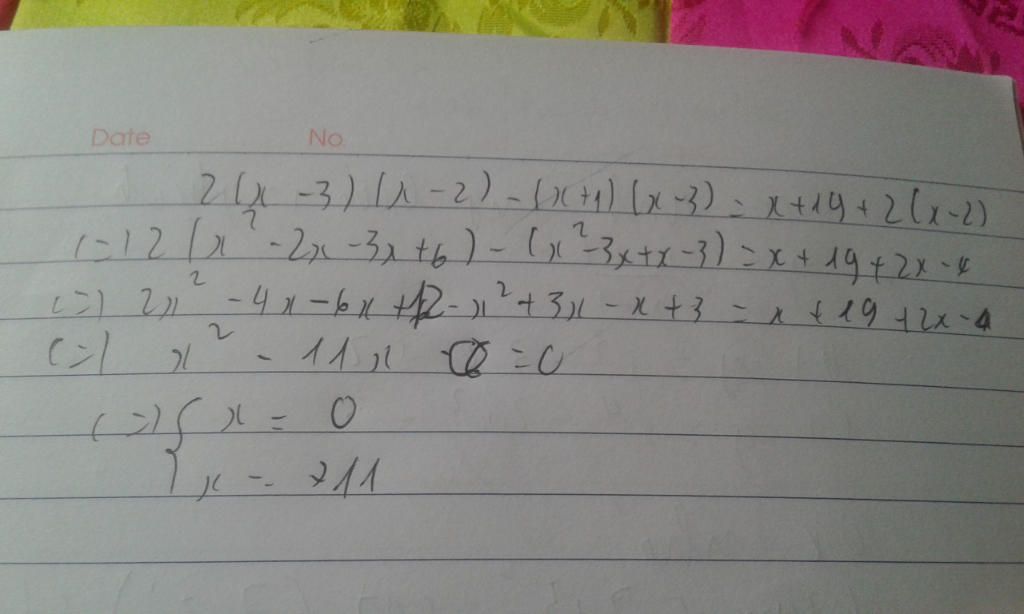 Date No.
2(x - 3)(x - 2) - (x+1)(x-3) = x+19+2(x-2)
(=) 2(x² - 2x - 3x + 6) - (x² - 3x + x - 3) = x + 19 + 2x - 4
(=) 2x² - 4x - 6x + 12 - x² + 3x - x + 3 = x + 19 + 2x - 4
(=) x² - 11x = 0
(=) { x = 0
x = 11